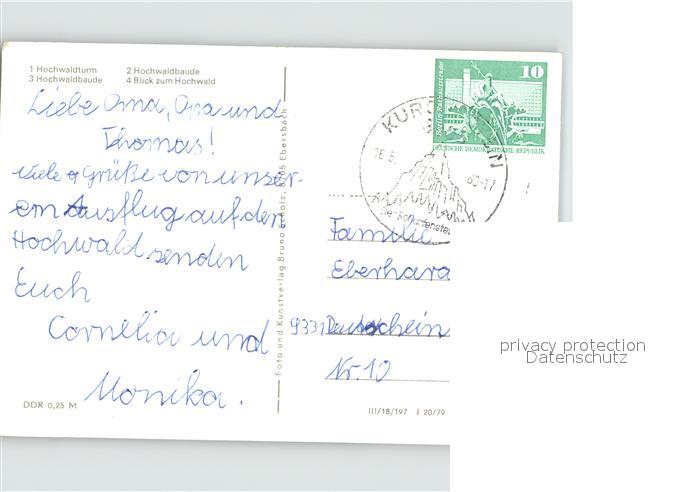 1 Hochwaldturm 2 Hochwaldbaude
3 Hochwaldbaude 4 Blick zum Hochwald
Liebe Oma, Opa und
Thomas!
Viele Grüße von unser-
em Ausflug auf den
Hochwald senden
Euch
Cornelia und
Monika.
DDR 0,25 M
Foto und Kunstverlag Bruno Scholz, Ebersbach
10
Berlin-Rathausstraße
DEUTSCHE DEMOKRATISCHE REPUBLIK
KURORT
16.5.
80-17
Familie
Eberhard
Deutschein
Nr. 10
III/18/197 J 20/79
privacy protection
Datenschutz